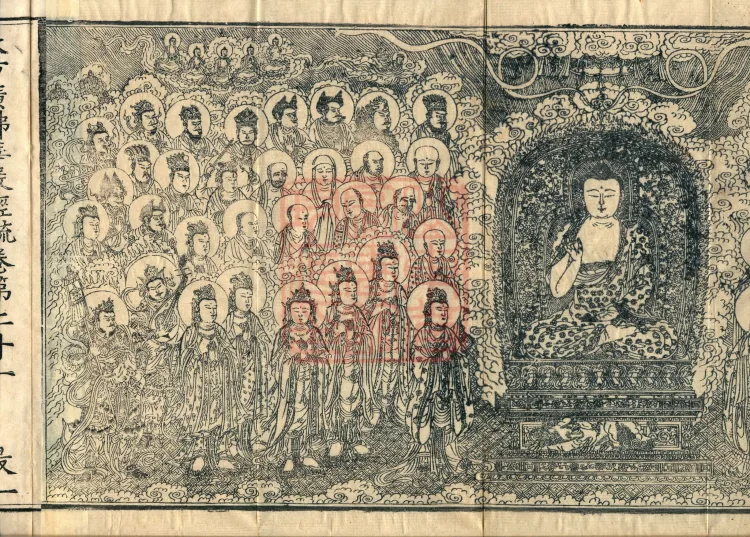 大方廣佛華嚴經疏卷第二十一 最一